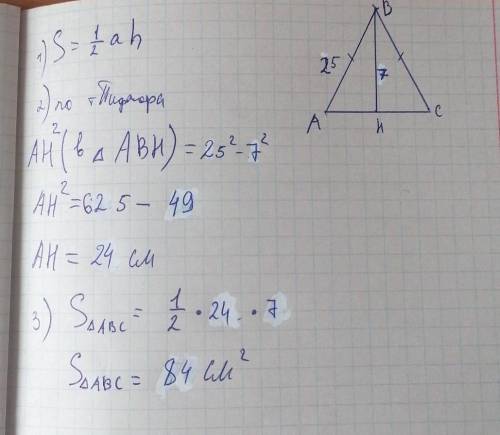 1) S = 1/2 ah
2) по т Пифагора
AH² (в △ ABH) = 25² - 7²
AH² = 625 - 49
AH = 24 см
3) S△ABC = 1/2 • 24 • 7
S△ABC = 84 см²
B
25
7
A
H
C